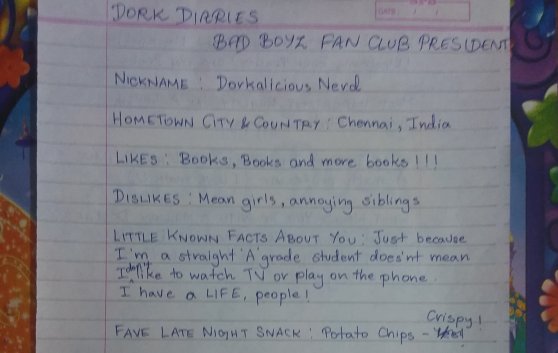 DORK DIARIES
DATE / /
BAD BOYZ FAN CLUB PRESIDENT
NICKNAME : Dorkalicious Nerd
HOMETOWN CITY & COUNTRY : Chennai, India
LIKES : Books, Books and more books!!!
DISLIKES : Mean girls, annoying siblings
LITTLE KNOWN FACTS ABOUT YOU : Just because
I'm a straight 'A' grade student does'nt mean
I don't like to watch TV or play on the phone.
I have a LIFE, people!
Crispy!
FAVE LATE NIGHT SNACK : Potato Chips -